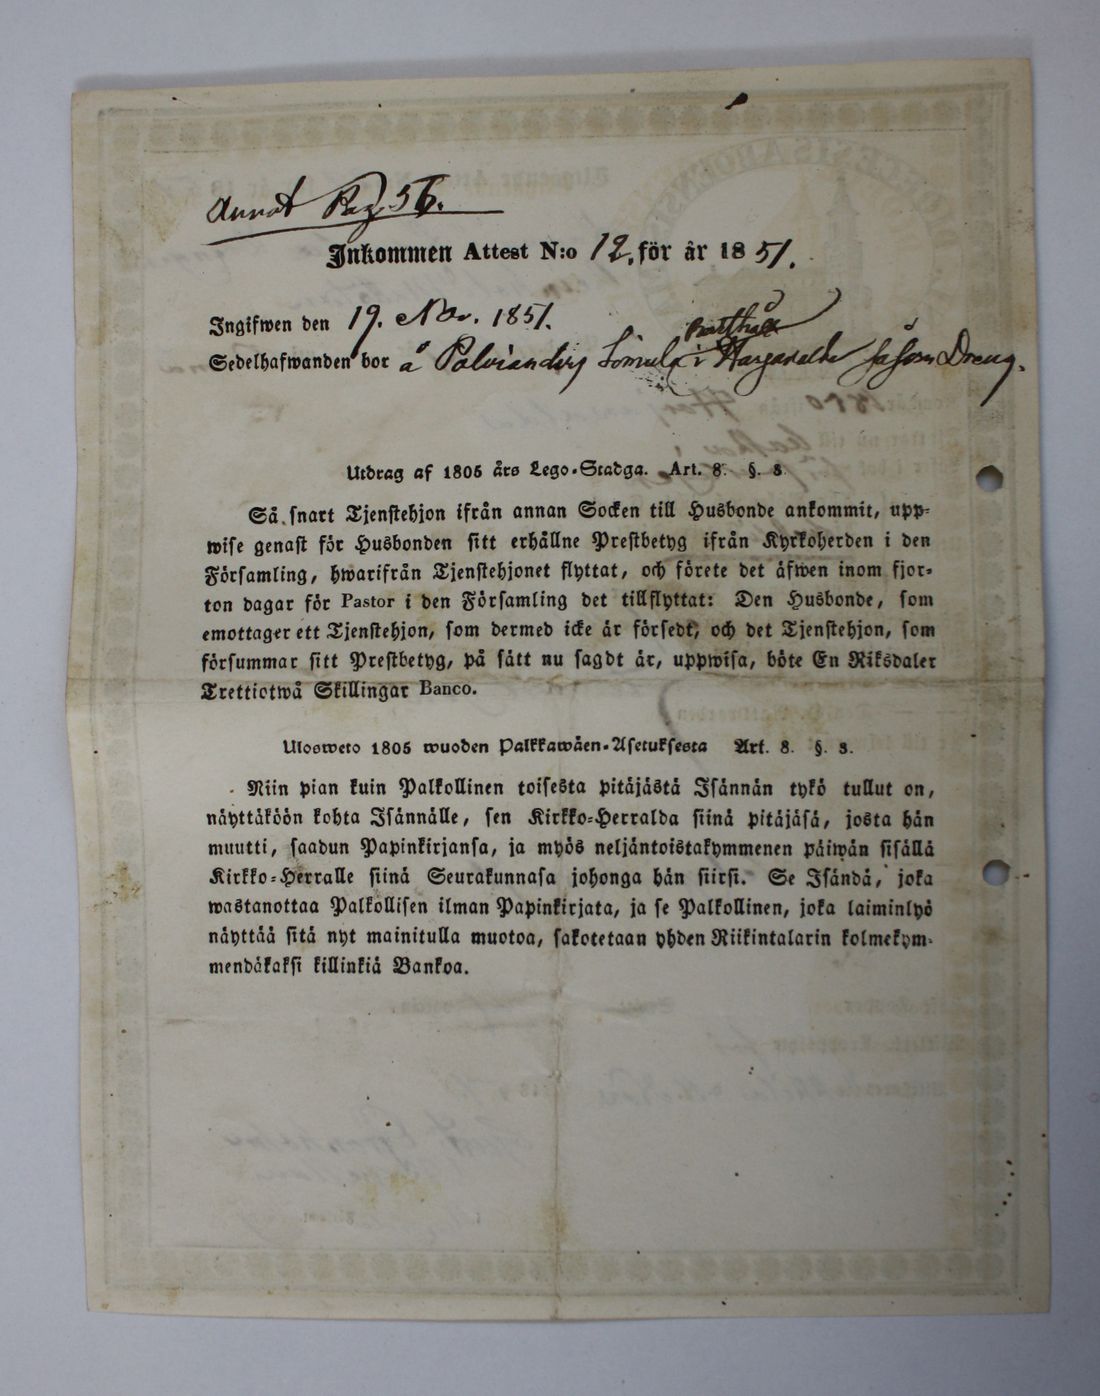 Annot Pag. 56.
Inkommen Attest N:o 12. för år 1851.
Ingifwen den 19. Nov. 1851.
Sedelhafwanden bor å i såsom Dreng.
Utdrag af 1805 års Lego-Stadga. Art. 8. §. 8.
Så snart Tjenstehjon ifrån annan Socken till Husbonde ankommit, upp-
wise genast för Husbonden sitt erhållne Prestbetyg ifrån Kyrkoherden i den
Församling, hwarifrån Tjenstehjonet flyttat, och förete det äfwen inom fjor-
ton dagar för Pastor i den Församling det tillflyttat: Den Husbonde, som
emottager ett Tjenstehjon, som dermed icke är försedt, och det Tjenstehjon, som
försummar sitt Prestbetyg, på sätt nu sagdt är, uppwisa, böte En Riksdaler
Trettiotwå Skillingar Banco.
Ulosweto 1805 wuoden Palkkawäen-Asetuksesta Art. 8. §. 8.
Niin pian kuin Palkollinen toisesta pitäjästä Isännän tykö tullut on,
näyttäköön kohta Isännälle, sen Kirkko-Herralda siinä pitäjäsä, josta hän
muutti, saadun Papinkirjansa, ja myös neljäntoistakymmenen päiwän sisällä
Kirkko-Herralle siinä Seurakunnasa johonga hän siirsi. Se Isändä, joka
wastanottaa Palkollisen ilman Papinkirjata, ja se Palkollinen, joka laiminlyö
näyttää sitä nyt mainitulla muotoa, sakotetaan yhden Riikintalarin kolmekym-
mendäkaksi killinkiä Bankoa.